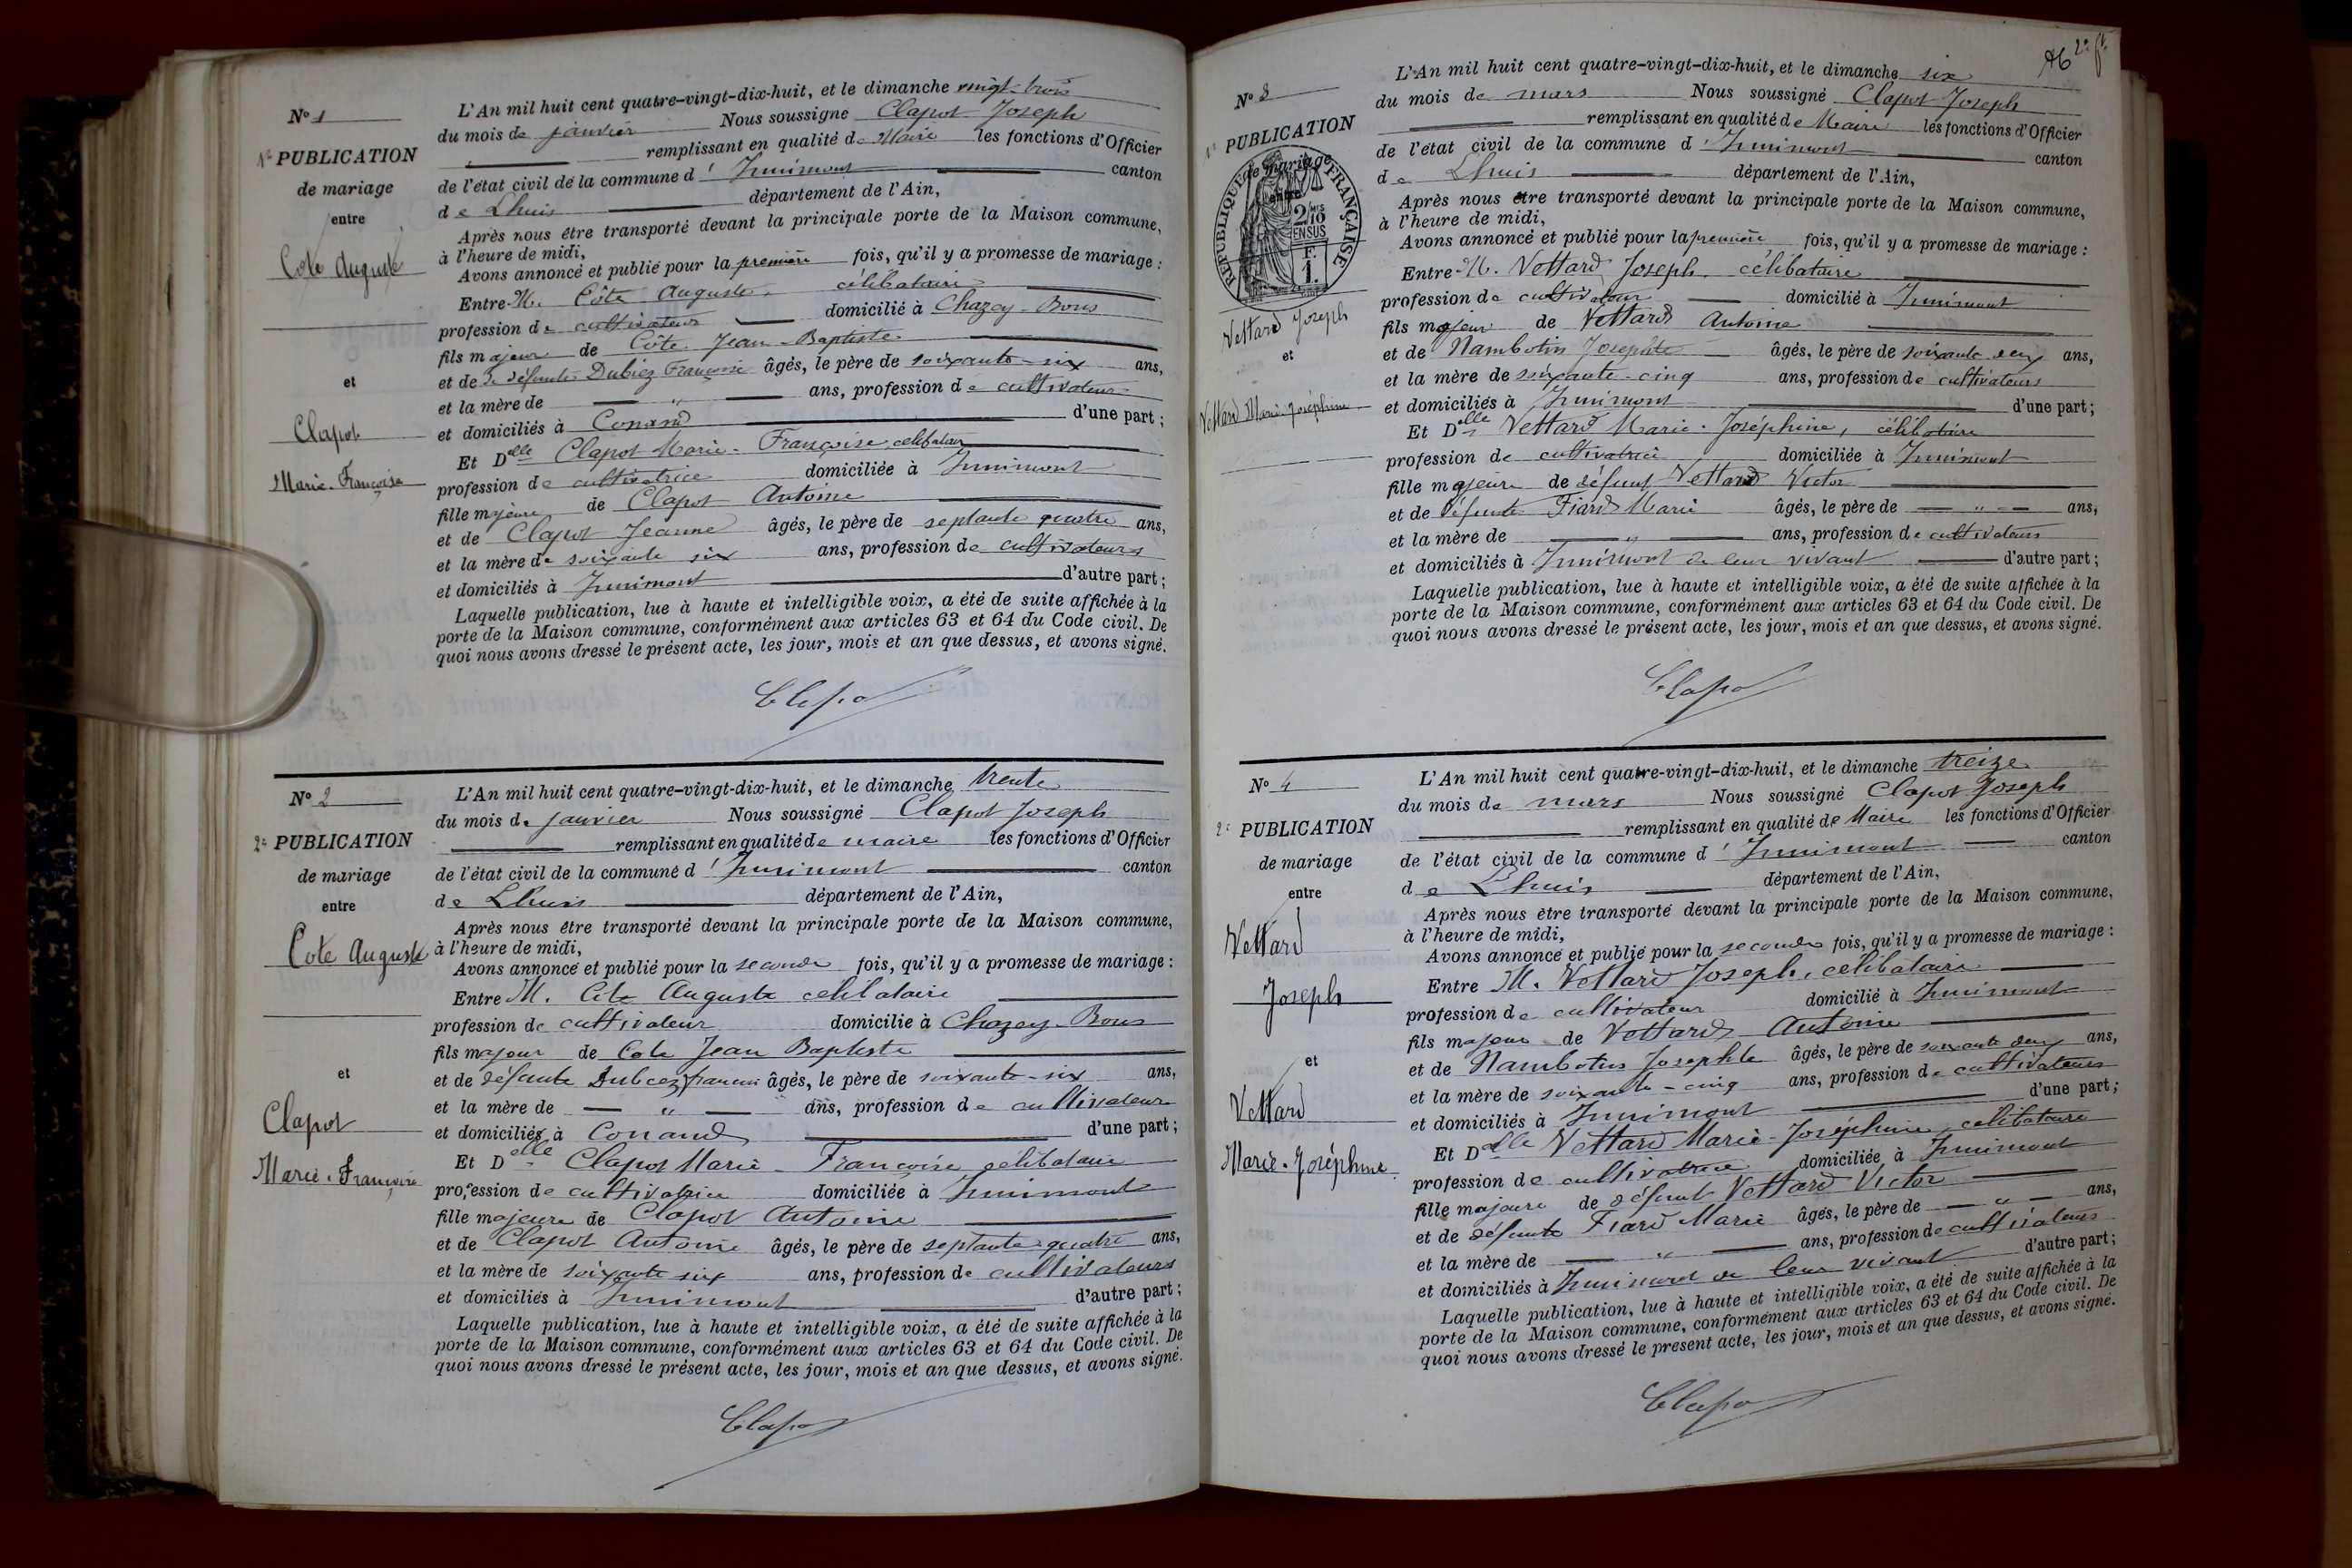 N° 1
1re PUBLICATION
de mariage
entre
Cote Auguste
et
Clapot
Marie-Françoise
L'An mil huit cent quatre-vingt-dix-huit, et le dimanche vingt-trois
du mois de janvier Nous soussigné Clapot Joseph
remplissant en qualité de Maire les fonctions d'Officier
de l'état civil de la commune d'Innimont canton
de Lhuis département de l'Ain,
Après nous être transporté devant la principale porte de la Maison commune,
à l'heure de midi,
Avons annoncé et publié pour la première fois, qu'il y a promesse de mariage :
Entre M. Côte Auguste, célibataire
profession de cultivateur domicilié à Chazey-Bons
fils majeur de Côte Jean-Baptiste
et de défunte Dubiez Françoise âgés, le père de soixante-six ans,
et la mère de — " — ans, profession de cultivateur
et domiciliés à Conand d'une part ;
Et Delle Clapot Marie-Françoise célibataire
profession de cultivatrice domiciliée à Innimont
fille majeure de Clapot Antoine
et de Clapot Jeanne âgés, le père de septante quatre ans,
et la mère de soixante six ans, profession de cultivateurs
et domiciliés à Innimont d'autre part ;
Laquelle publication, lue à haute et intelligible voix, a été de suite affichée à la
porte de la Maison commune, conformément aux articles 63 et 64 du Code civil. De
quoi nous avons dressé le présent acte, les jour, mois et an que dessus, et avons signé.
Clapot
N° 2
2e PUBLICATION
de mariage
entre
Cote Auguste
et
Clapot
Marie-Françoise
L'An mil huit cent quatre-vingt-dix-huit, et le dimanche trente
du mois de janvier Nous soussigné Clapot Joseph
remplissant en qualité de maire les fonctions d'Officier
de l'état civil de la commune d'Innimont canton
de Lhuis département de l'Ain,
Après nous être transporté devant la principale porte de la Maison commune,
à l'heure de midi,
Avons annoncé et publié pour la seconde fois, qu'il y a promesse de mariage :
Entre M. Cote Auguste célibataire
profession de cultivateur domicilié à Chazey-Bons
fils majeur de Cote Jean Baptiste
et de défunte âgés, le père de soixante-six ans,
et la mère de — " — ans, profession de cultivateur
et domiciliés à Conand d'une part ;
Et Delle Clapot Marie-Françoise célibataire
profession de cultivatrice domiciliée à Innimont
fille majeure de Clapot Antoine
et de Clapot Antoine âgés, le père de septante-quatre ans,
et la mère de soixante six ans, profession de cultivateurs
et domiciliés à Innimont d'autre part ;
Laquelle publication, lue à haute et intelligible voix, a été de suite affichée à la
porte de la Maison commune, conformément aux articles 63 et 64 du Code civil. De
quoi nous avons dressé le présent acte, les jour, mois et an que dessus, et avons signé.
Clapot
2e ft
N° 3
1re PUBLICATION
de mariage
entre
RÉPUBLIQUE FRANÇAISE
2/10
EN SUS
F.
1.
Vettard Joseph
et
Vettard Marie-Joséphine
L'An mil huit cent quatre-vingt-dix-huit, et le dimanche six
du mois de mars Nous soussigné Clapot Joseph
remplissant en qualité de Maire les fonctions d'Officier
de l'état civil de la commune d'Innimont canton
de Lhuis département de l'Ain,
Après nous être transporté devant la principale porte de la Maison commune,
à l'heure de midi,
Avons annoncé et publié pour la première fois, qu'il y a promesse de mariage :
Entre M. Vettard Joseph célibataire
profession de cultivateur domicilié à Innimont
fils majeur de Vettard Antoine
et de Nambotin Josephte âgés, le père de soixante deux ans,
et la mère de soixante-cinq ans, profession de cultivateurs
et domiciliés à Innimont d'une part ;
Et Delle Vettard Marie-Joséphine, célibataire
profession de cultivatrice domiciliée à Innimont
fille majeure de défunt Vettard Victor
et de défunte Fiard Marie âgés, le père de — " — ans,
et la mère de — " — ans, profession de cultivateurs
et domiciliés à Innimont de leur vivant d'autre part ;
Laquelle publication, lue à haute et intelligible voix, a été de suite affichée à la
porte de la Maison commune, conformément aux articles 63 et 64 du Code civil. De
quoi nous avons dressé le présent acte, les jour, mois et an que dessus, et avons signé.
Clapot
N° 4
2e PUBLICATION
de mariage
entre
Vettard
Joseph
et
Vettard
Marie-Joséphine
L'An mil huit cent quatre-vingt-dix-huit, et le dimanche treize
du mois de mars Nous soussigné Clapot Joseph
remplissant en qualité de Maire les fonctions d'Officier
de l'état civil de la commune d'Innimont canton
de Lhuis département de l'Ain,
Après nous être transporté devant la principale porte de la Maison commune,
à l'heure de midi,
Avons annoncé et publié pour la seconde fois, qu'il y a promesse de mariage :
Entre M. Vettard Joseph, célibataire
profession de cultivateur domicilié à Innimont
fils majeur de Vettard Antoine
et de Nambotin Josephte âgés, le père de soixante deux ans,
et la mère de soixante-cinq ans, profession de cultivateurs
et domiciliés à Innimont d'une part ;
Et Delle Vettard Marie-Joséphine, célibataire
profession de cultivatrice domiciliée à Innimont
fille majeure de défunt Vettard Victor
et de défunte Fiard Marie âgés, le père de — " — ans,
et la mère de — " — ans, profession de cultivateurs
et domiciliés à Innimont de leur vivant d'autre part ;
Laquelle publication, lue à haute et intelligible voix, a été de suite affichée à la
porte de la Maison commune, conformément aux articles 63 et 64 du Code civil. De
quoi nous avons dressé le présent acte, les jour, mois et an que dessus, et avons signé.
Clapot